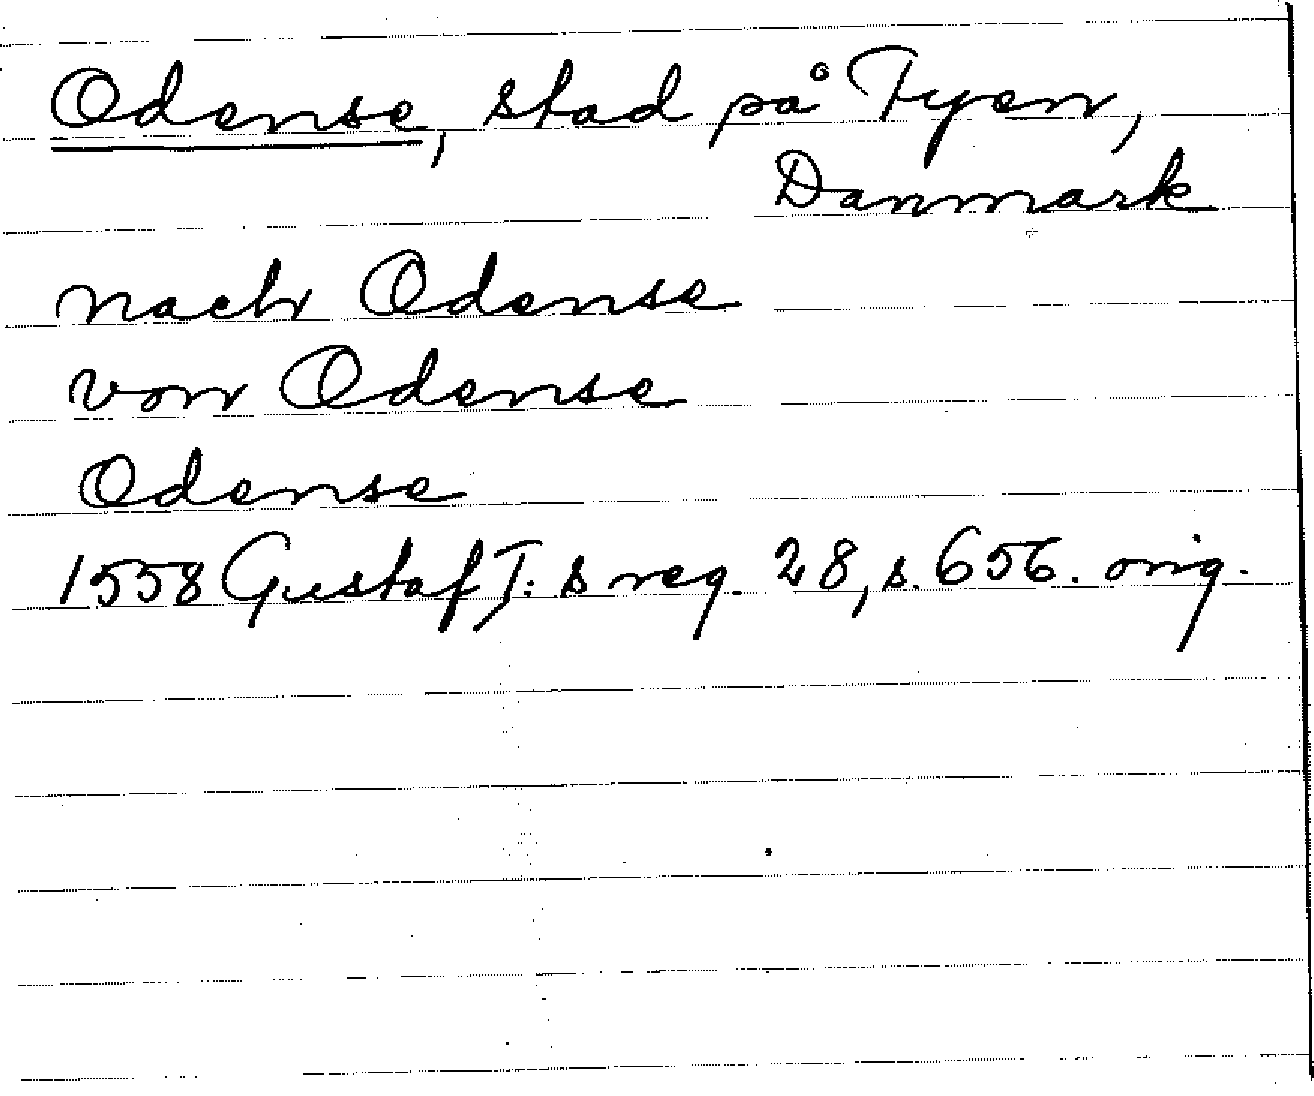 Odense, stad på Fyen,
Danmark
nach Odense
von Odense
Odense
1558 Gustaf I:s reg. 28, s. 656. orig.